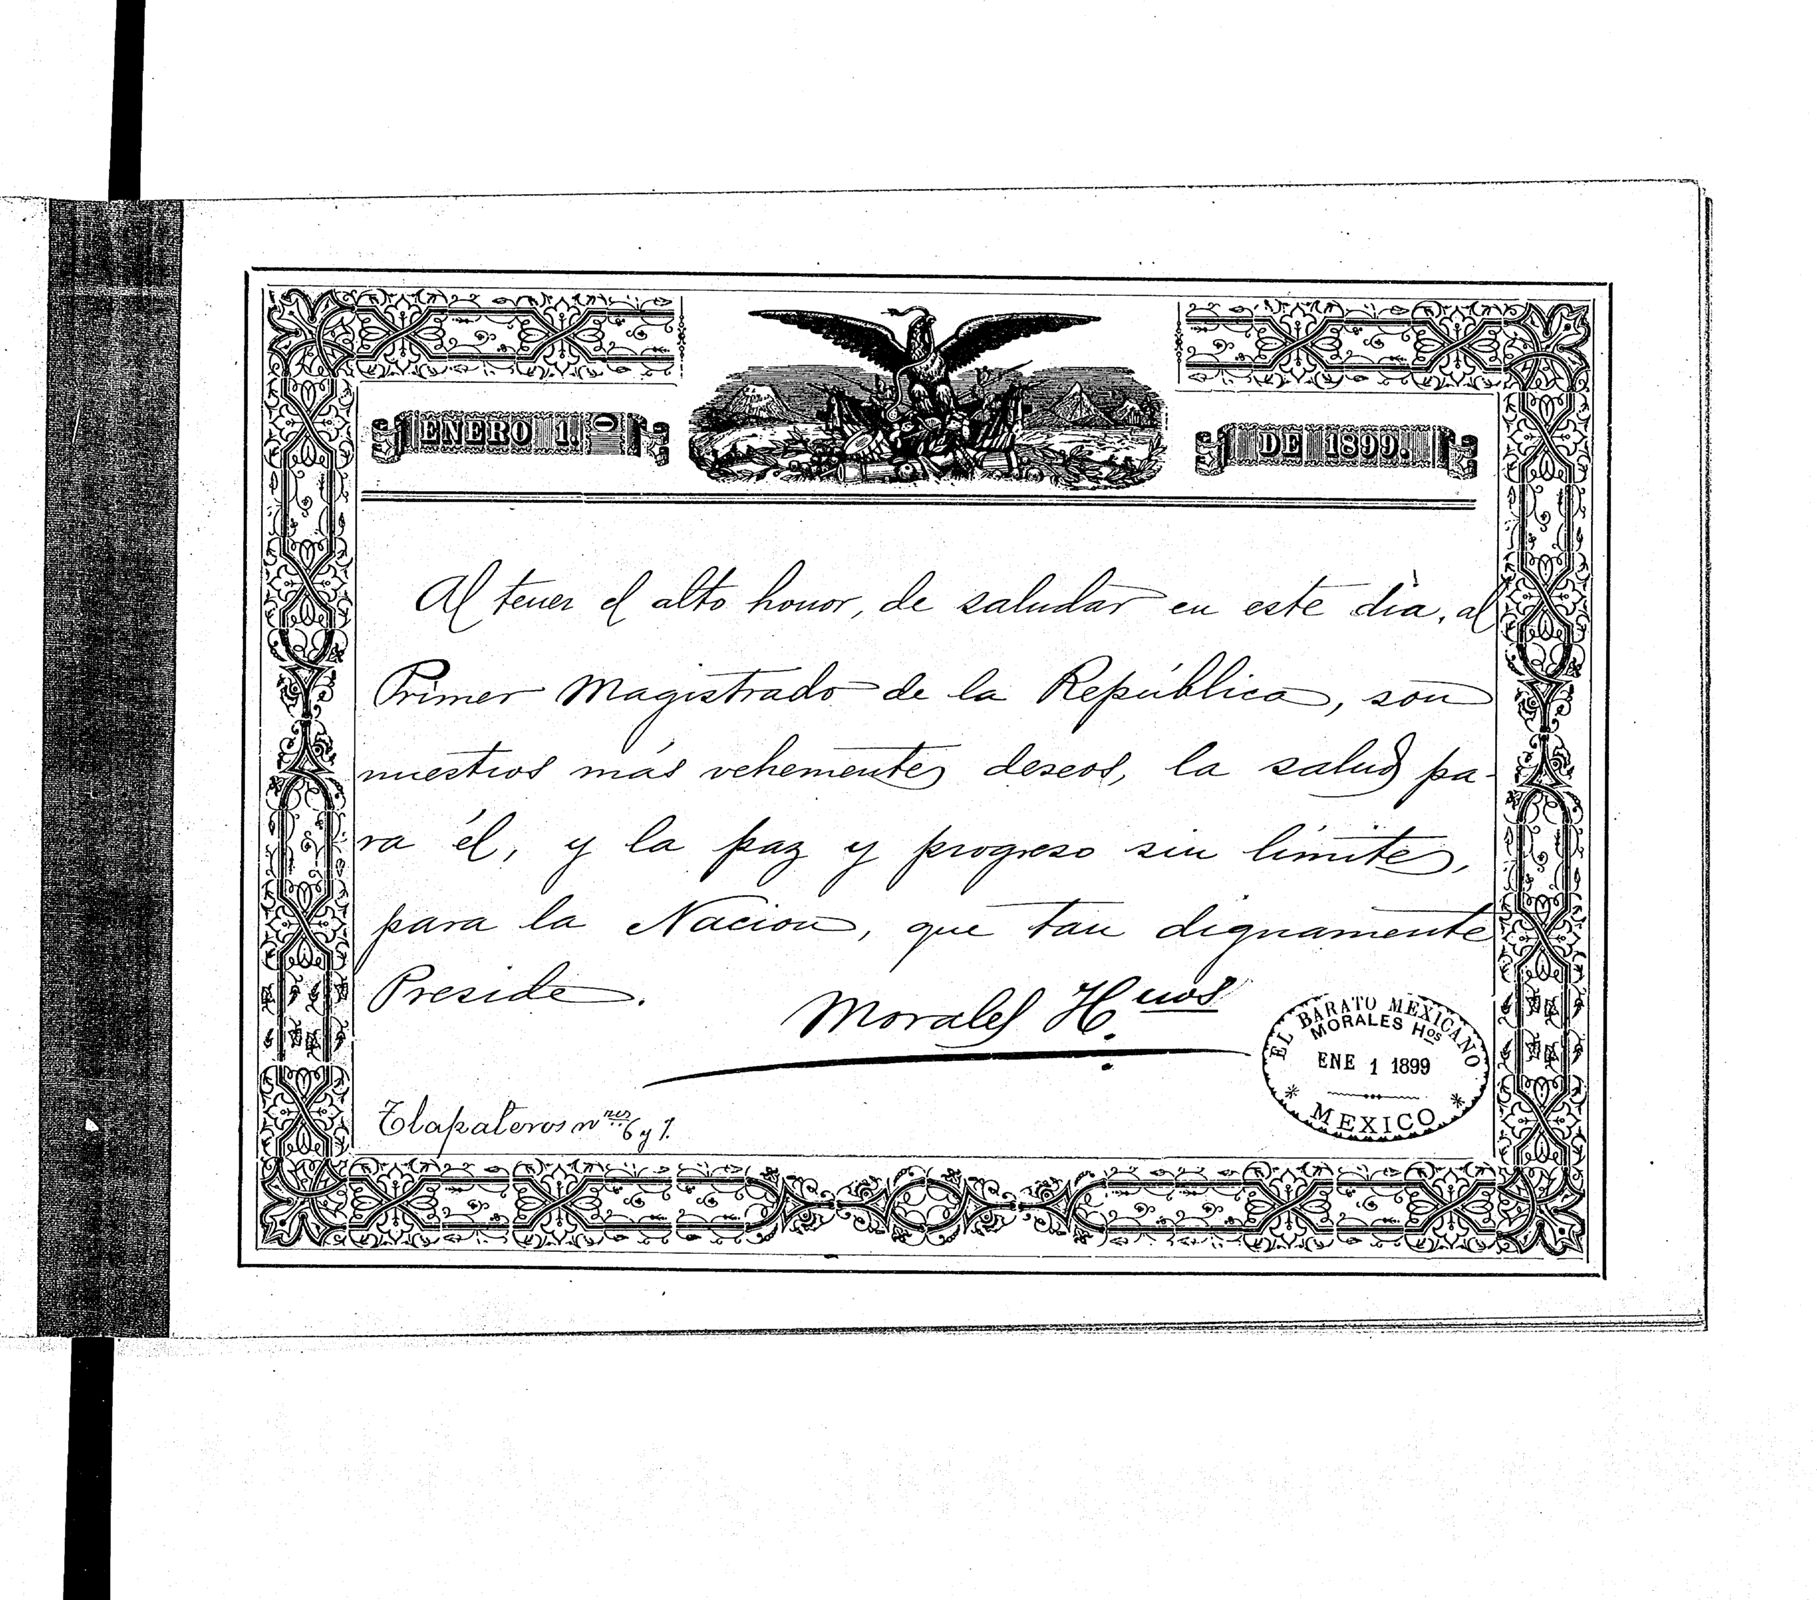 ENERO 1.O DE 1899.
Al tener el alto honor, de saludar en este día, al
Primer Magistrado de la República, son
nuestros más vehementes deseos, la salud pa-
ra él, y la paz y progreso sin límites,
para la Nacion, que tan dignamente
Preside.
Morales H.nos
EL BARATO MEXICANO
MORALES Hos
ENE 1 1899
MEXICO
Tlapaleros nres 6 y 7.